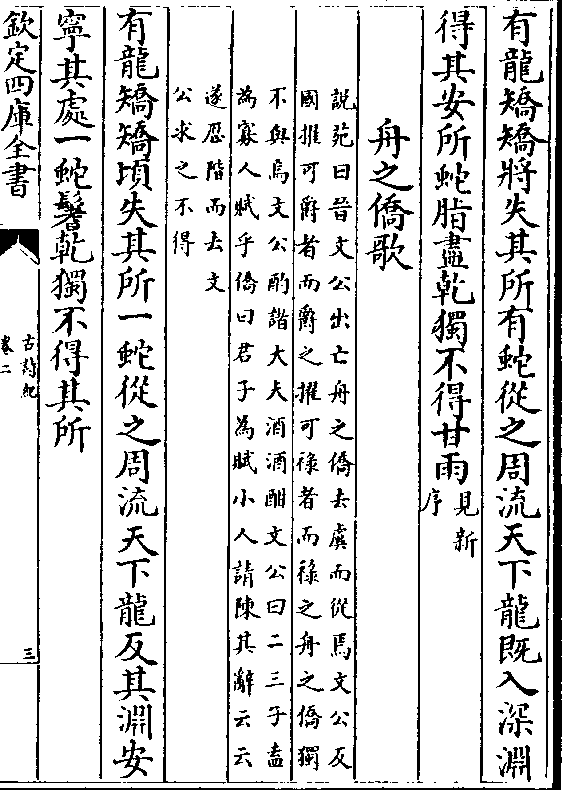 有龍矯矯將失其所有蛇從之周流天下龍既入深淵
得其安所蛇脂盡乾獨不得甘雨見新
序
舟之僑歌
說苑曰晉文公出亡舟之僑去虞而從焉文公反
國擇可爵者而爵之擇可祿者而祿之舟之僑獨
不與焉文公酌諸大夫酒酒酣文公曰二三子盍
為寡人賦乎僑曰君子為賦小人請陳其辭云云
遂歷階而去文
公求之不得
有龍矯矯頃失其所一蛇從之周流天下龍反其淵安
寧其處一蛇鬐乾獨不得其所
欽定四庫全書
古詩紀
卷二
三